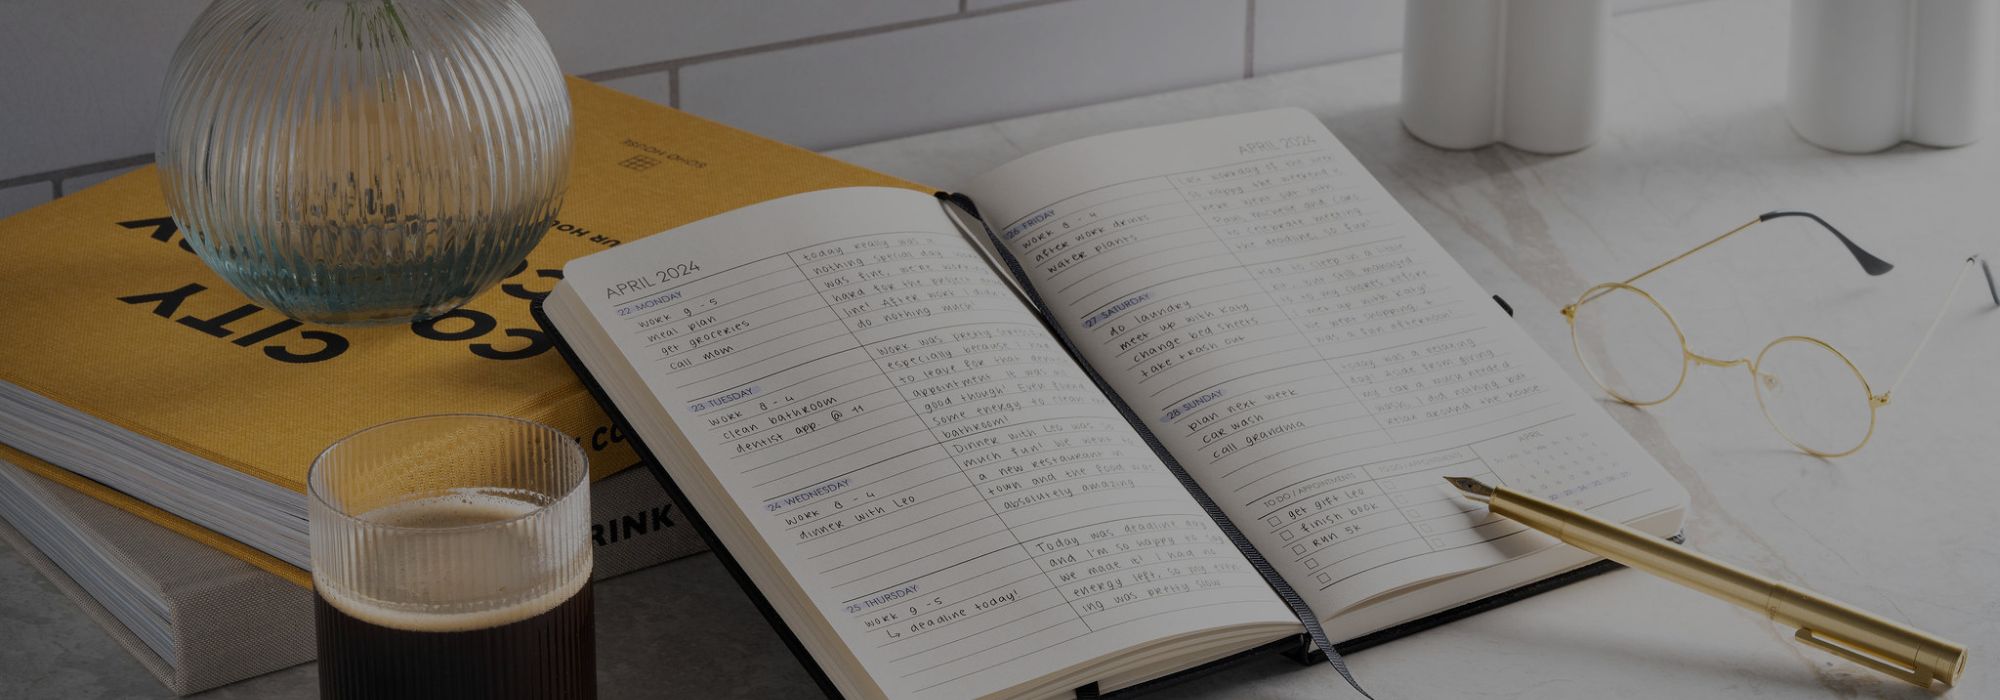 SOHO HOUSE
OUR HOU
CITY
CO
CO
RINK
APRIL 2024
22 MONDAY
work 9 - 5
meal plan
get groceries
call mom
today really was a
nothing special day
was fine, we're
hard for the project
line! After work I didn't
do nothing much
23 TUESDAY
work 8 - 4
clean bathroom
dentist app. @ 11
Work was pretty
especially because I had
to leave for that
appointment. It was
good though! Even
some energy to clean
bathroom!
24 WEDNESDAY
work 8 - 4
dinner with Leo
Dinner with Leo was so
much fun! We went to
a new restaurant in
town and the food was
absolutely amazing
25 THURSDAY
work 9 - 5
↳ deadline today!
Today was deadline day
and I'm so happy to say
we made it! I had no
energy left, so my even-
ing was pretty slow
APRIL 2024
26 FRIDAY
work 8 - 4
after work drinks
water plants
of the week
so happy the weekend is
here. Went out with
Paul, Michelle and
to celebrate meeting
the deadline, so fun!
27 SATURDAY
do laundry
meet up with Katy
change bed sheets
take trash out
Had to sleep in a little
bit, but still managed
to my chores before
I met up with Katy!
We went shopping, it
was a fun afternoon!
28 SUNDAY
plan next week
car wash
call grandma
today was a relaxing
day! Aside from giving
my car a much needed
wash, did nothing but
relax around the house
TO DO / APPOINTMENTS
get gift Leo
finish book
run 5k
TO DO / APPOINTMENTS
APRIL